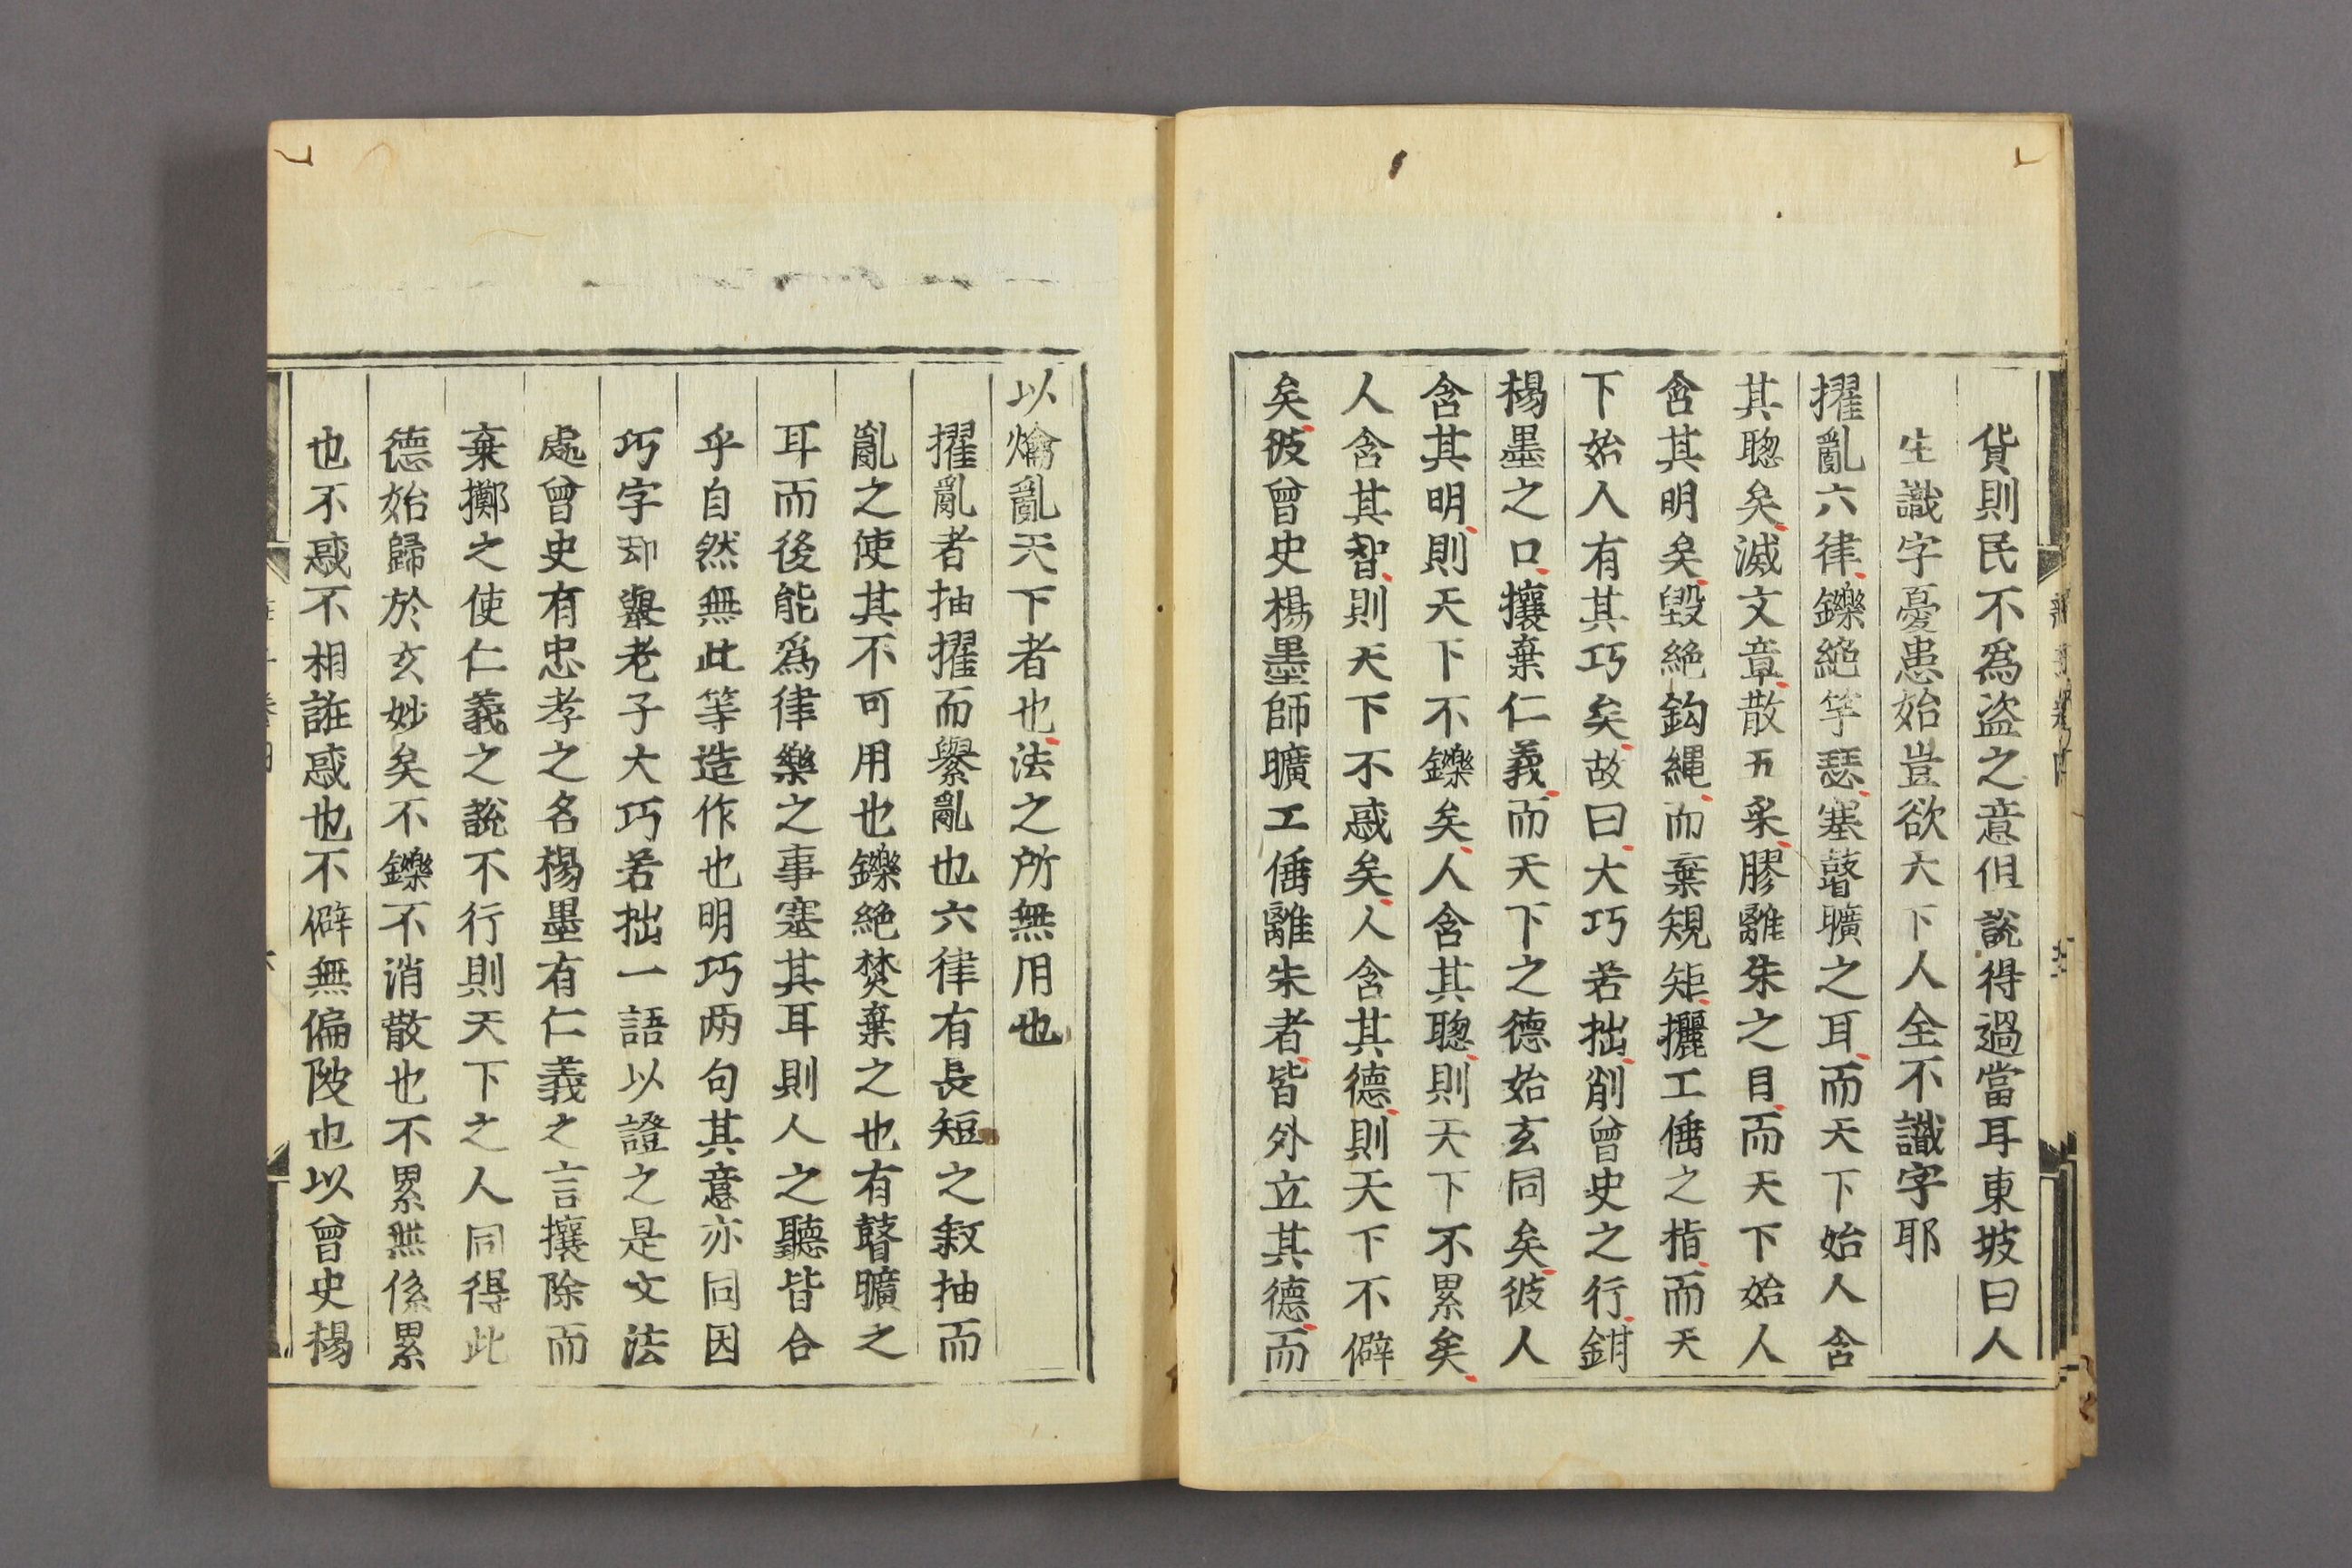 貨則民不爲盜之意但說得過當耳東坡曰人
生識字憂患始豈欲大下人全不識字耶
擢亂六律鑠絕竽瑟塞瞽曠之耳而天下始人含
其聰矣滅文章散五采膠離朱之目而天下始人
含其明矣毀絕鉤繩而棄規矩攦工倕之指而天
下始人有其巧矣故曰大巧若拙削曾史之行鉗
楊墨之口攘棄仁義而天下之德始玄同矣彼人
含其明則天下不鑠矣人含其聰則天下不累矣
人含其智則天下不惑矣人含其德則天下不僻
矣彼曾史楊墨師曠工倕離朱者皆外立其德而
以爚亂天下者也法之所無用也
擢亂者抽擢而紊亂也六律有長短之敘抽而
亂之使其不可用也鑠絕焚棄之也有瞽曠之
耳而後能爲律樂之事塞其耳則人之聽皆合
乎自然無此等造作也明巧两句其意亦同因
巧字却舉老子大巧若拙一語以證之是文法
處曾史有忠孝之名楊墨有仁義之言攘除而
棄擲之使仁義之說不行則天下之人同得此
德始歸於玄妙矣不鑠不消散也不累無係累
也不惑不相誑惑也不僻無偏陂也以曾史楊